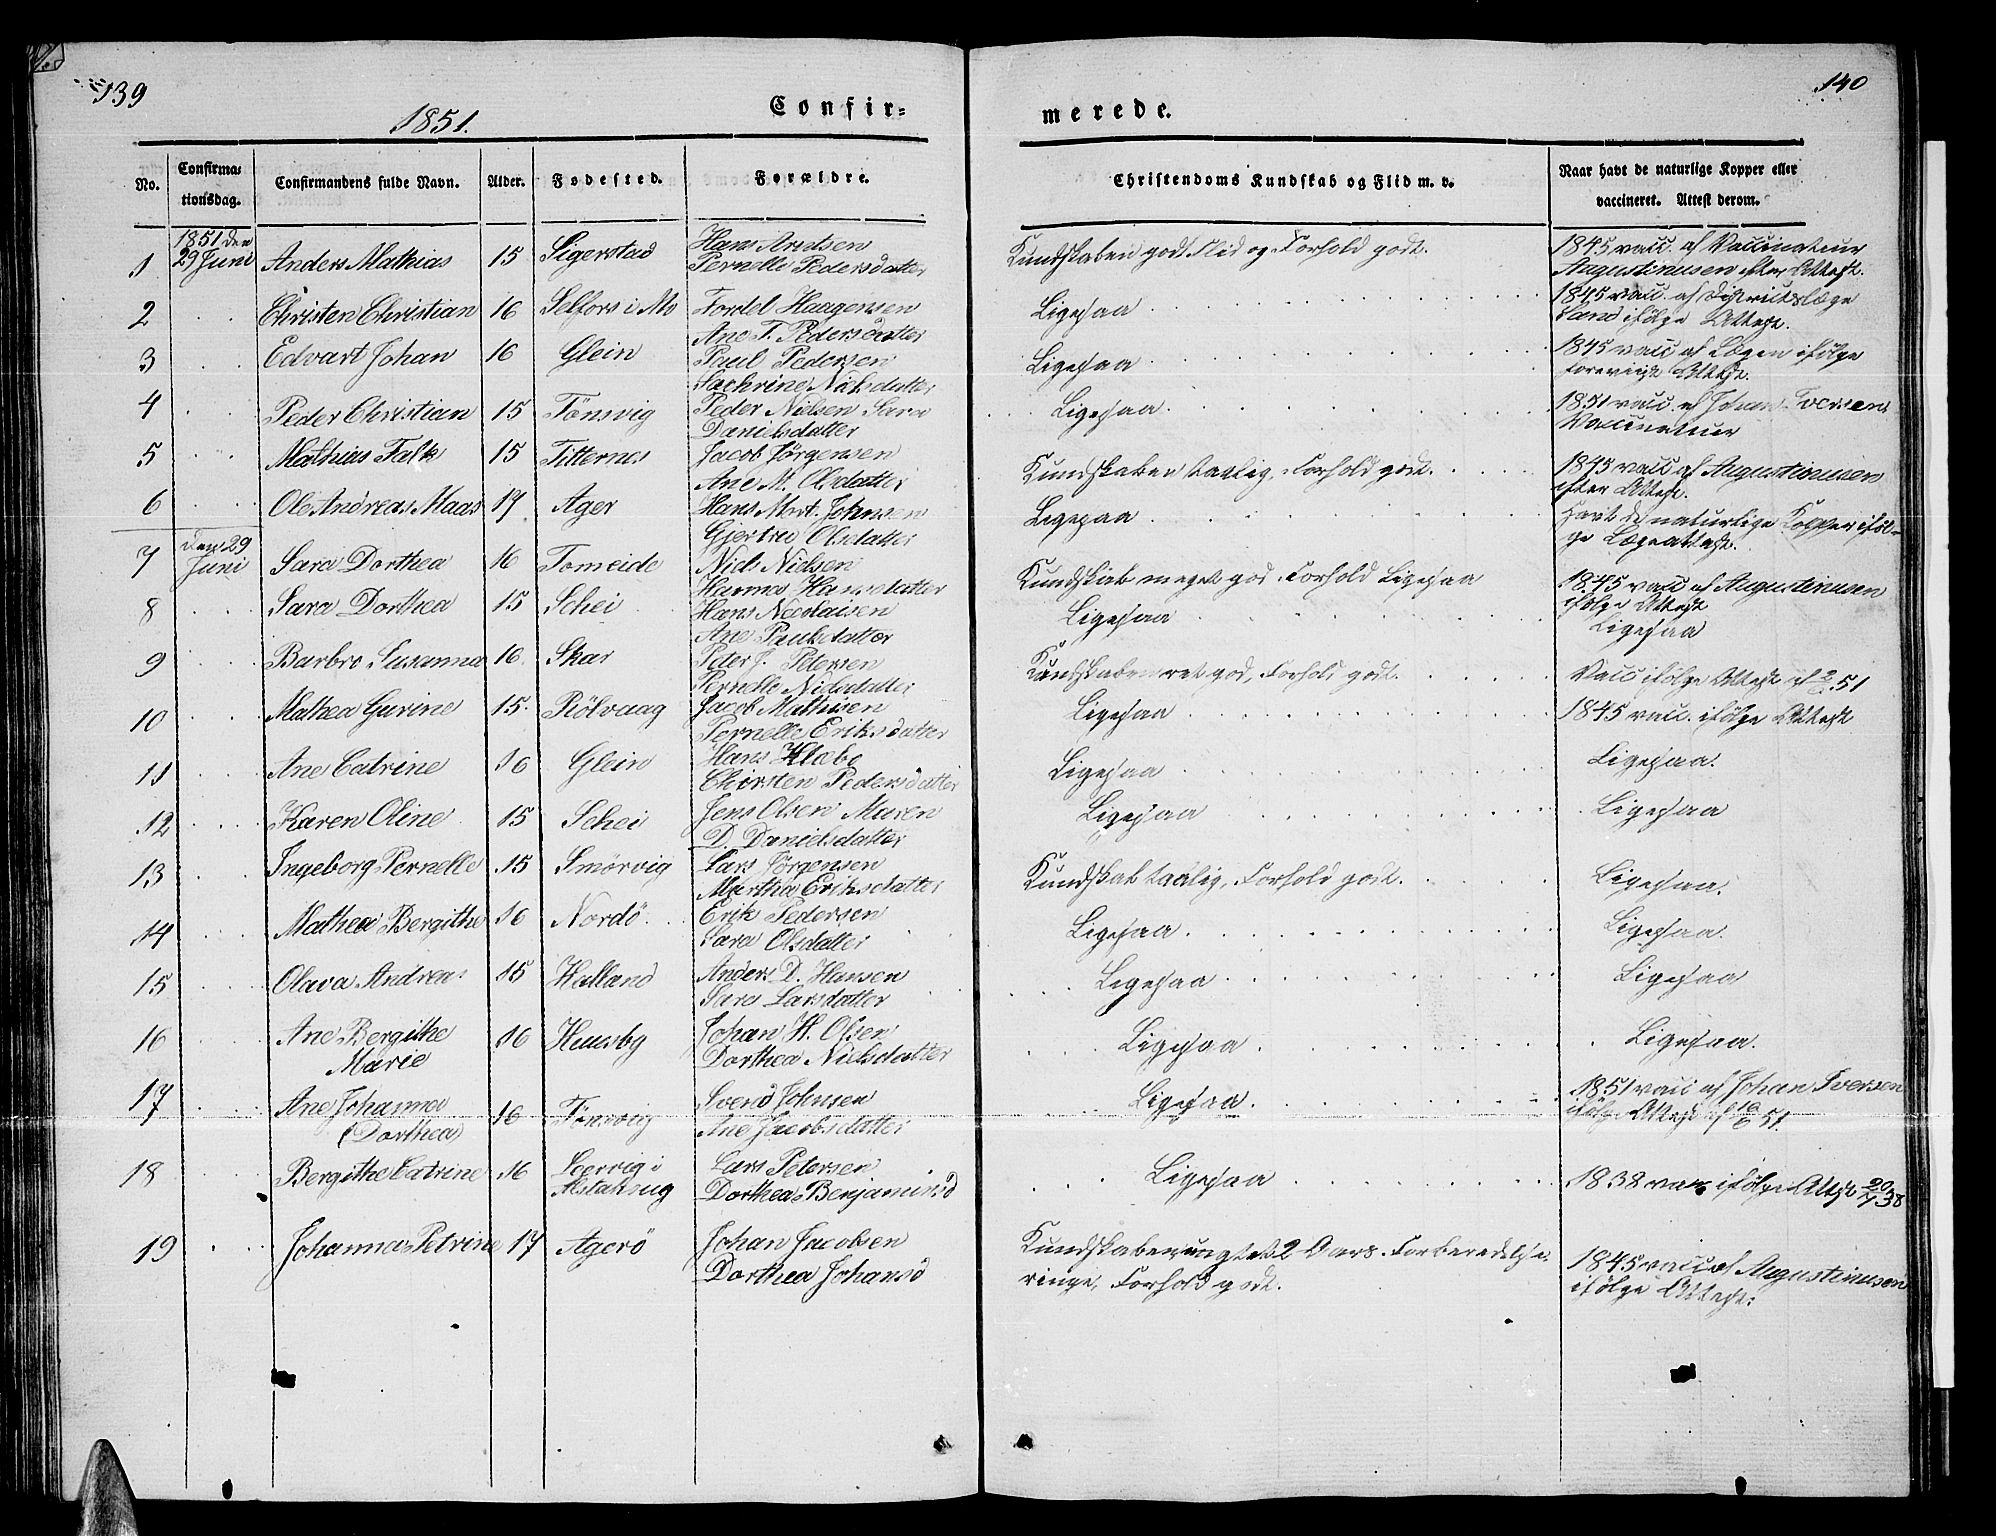 139
1851.
Confir-
merede.
140
No.
Confirma-
tionsdag.
Confirmandens fulde Navn.
Alder.
Fødested.
Forældre.
Christendoms Kundskab og Flid m. v.
Naar havt de naturlige Kopper eller
vaccineret. Attest derom.
1851 den
1 29 Juni Anders Mathias 15 Sigerstad Hans Arntsen
Pernelle Pedersdatter
Kundskaben god Flid og Forhold godt.
1845 vacc. af Vaccinateur
Augustinusen efter Attest.
2 Christen Christian 16 Selfors i Mo Tordel Haagensen
Ane T. Pedersdatter
Ligesaa
1845 vacc. af Districtslæge
ifölge Attest.
3 Edvart Johan 16 Glein Paul Pedersen
Nielsdatter
Ligesaa
1845 vacc af Lægen ifölge
Attest.
4 Peder Christian 15 Tönsvig Peder Nielsen Sara
Danielsdatter
Ligesaa
1851 vacc. af Johan Iversen
Vaccinateur
5 Mathias Falk 15 Titternes Jacob Jörgensen
Ane M. Olsdatter
Kundskaben taalig, Forhold godt.
1845 vacc af Augustinusen
efter Attest.
6 Ole Andreas Maas 17 Ager Hans Mort. Johnsen
Gjertru Olsdatter
Ligesaa
Havt de naturlige Kopper iföl-
ge Lægeattest.
den 29
7 Juni Sara Dorthea 16 Tomeide Niels Nielsen
Hanna Hansdatter
Kundskab meget god. Forhold Ligesaa
1845 vacc af Augustinusen
ifölge Attest
8 Sara Dorthea 15 Schei Hans Nicolaisen
Ane Paulsdatter
Ligesaa
Ligesaa
9 Barbro Susanna 16. Skar Peter J. Petersen
Pernelle Nielsdatter
Kundskaben ret god, Forhold godt.
Vacc ifölge Attest af 51
10 Mathea Gurine 15. Rölvaag Jacob Mathisen
Pernelle Eriksdatter
Ligesaa
1845 vacc. ifölge Attest
11 Ane Catrine 16 Glein Hans Klæbo
Chirsten Pedersdatter
Ligesaa
Ligesaa.
12 Karen Oline 15 Schei Jens Olsen Maren
D. Danielsdatter
Ligesaa
Ligesaa
13 Ingeborg Pernelle 15 Smörvig Lars Jörgensen
Martha Eriksdatter
Kundskab taalig, Forhold godt.
Ligesaa.
14 Mathea Bergithe 16 Nordö Erik Pedersen
Sara Olsdatter
Ligesaa
Ligesaa.
15 Olava Andrea 15 Halland Anders D. Hansen
Sara Larsdatter
Ligesaa
Ligesaa
16 Ane Bergithe
Marie 16 Huusby Johan H. Olsen
Dorthea Nielsdatter
Ligesaa
Ligesaa.
17 Ane Johanna
Dorthea 16 Tönsvig Svend Johnsen
Ane Jacobsdatter
Ligesaa.
1851 vacc af Johan Iversen
ifölge Attest af 16/6 51.
18 Bergithe Catrine 16 i
Alstahaug Lars Petersen
Dorthea Benjaminsd
Ligesaa
1838 vac. ifölge Attest 20/7 38
19 Johanna Petrine 17 Agerö Johan Jacobsen
Dorthea Johansd
Kundskaben uagtet 2 Aars Forberedelse
ringe, Forhold godt.
1845 vacc af Augustinusen
ifölge Attest.